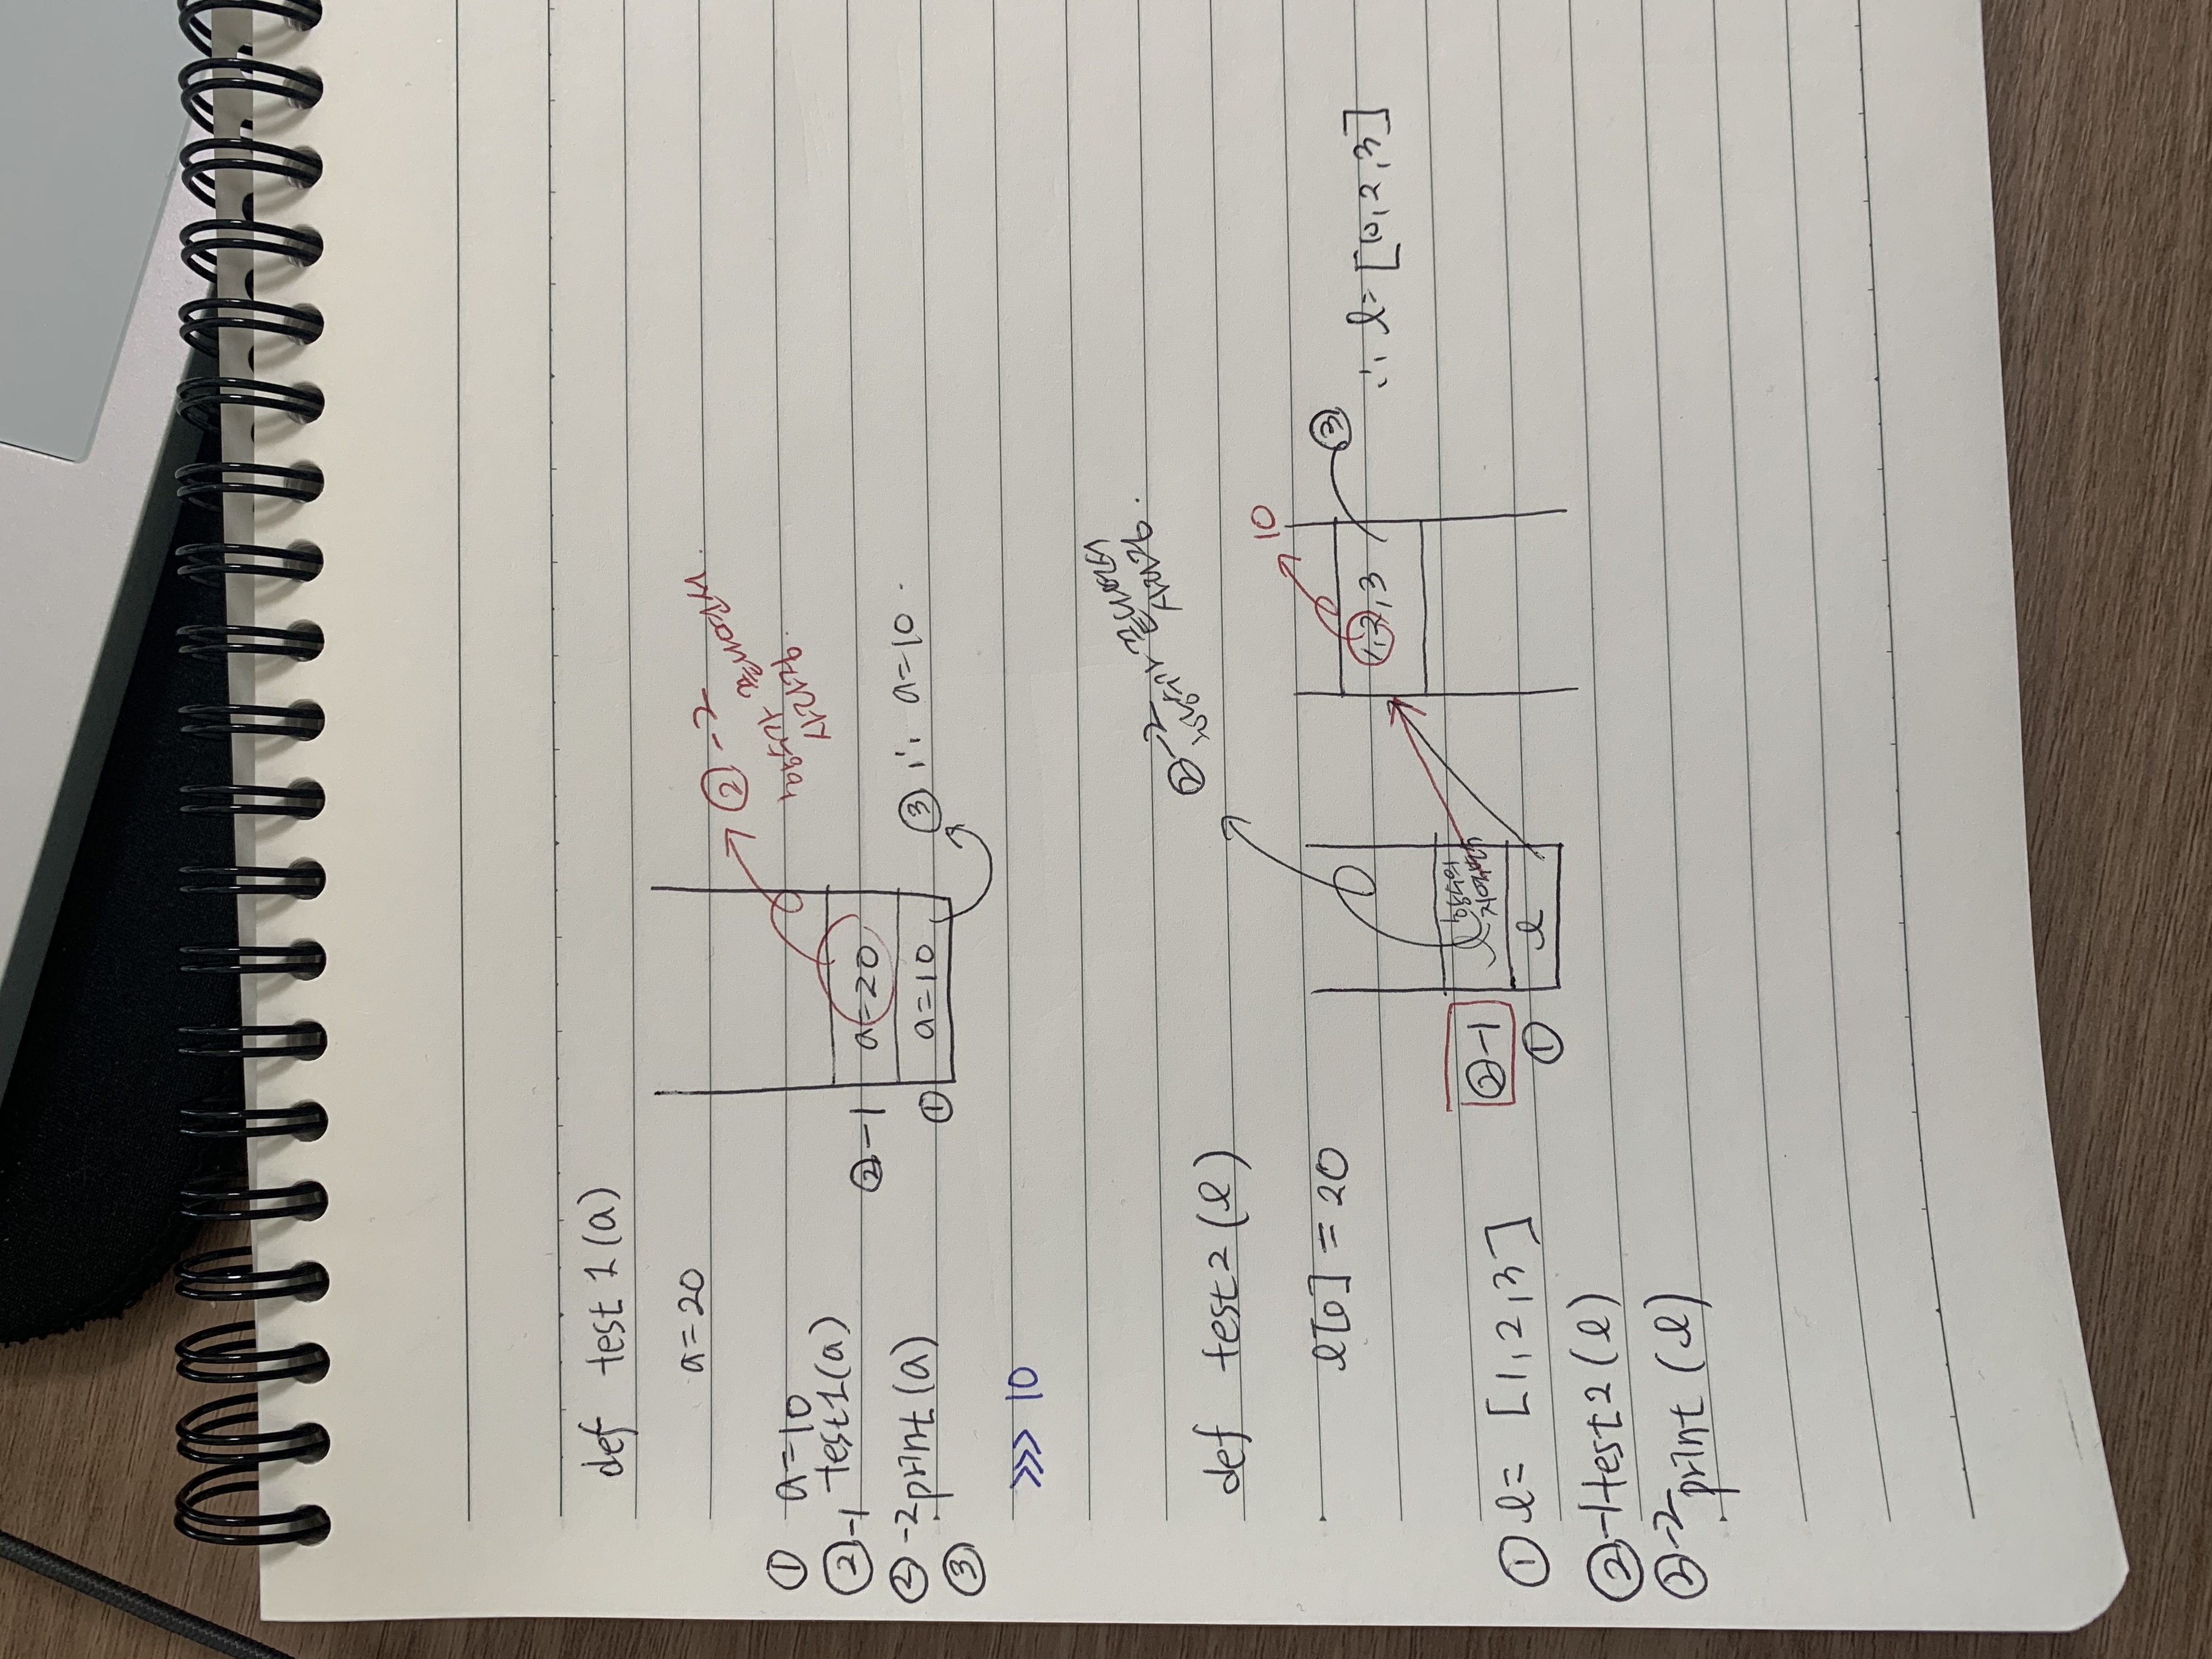 def test1(a)
a=20
① a=10
②-1 test1(a)
②-2 print(a)
③
>>> 10
②-2
②-1 a=20
① a=10
③ ∴ a=10.
def test2(l)
l[0] = 20
① l= [1, 2, 3]
②-1 test2(l)
②-2 print(l)
②-2
함수가
사라짐.
②-1 l 함수의
지역변수
① l
10
1,2,3
③
∴ l= [10, 2, 3]